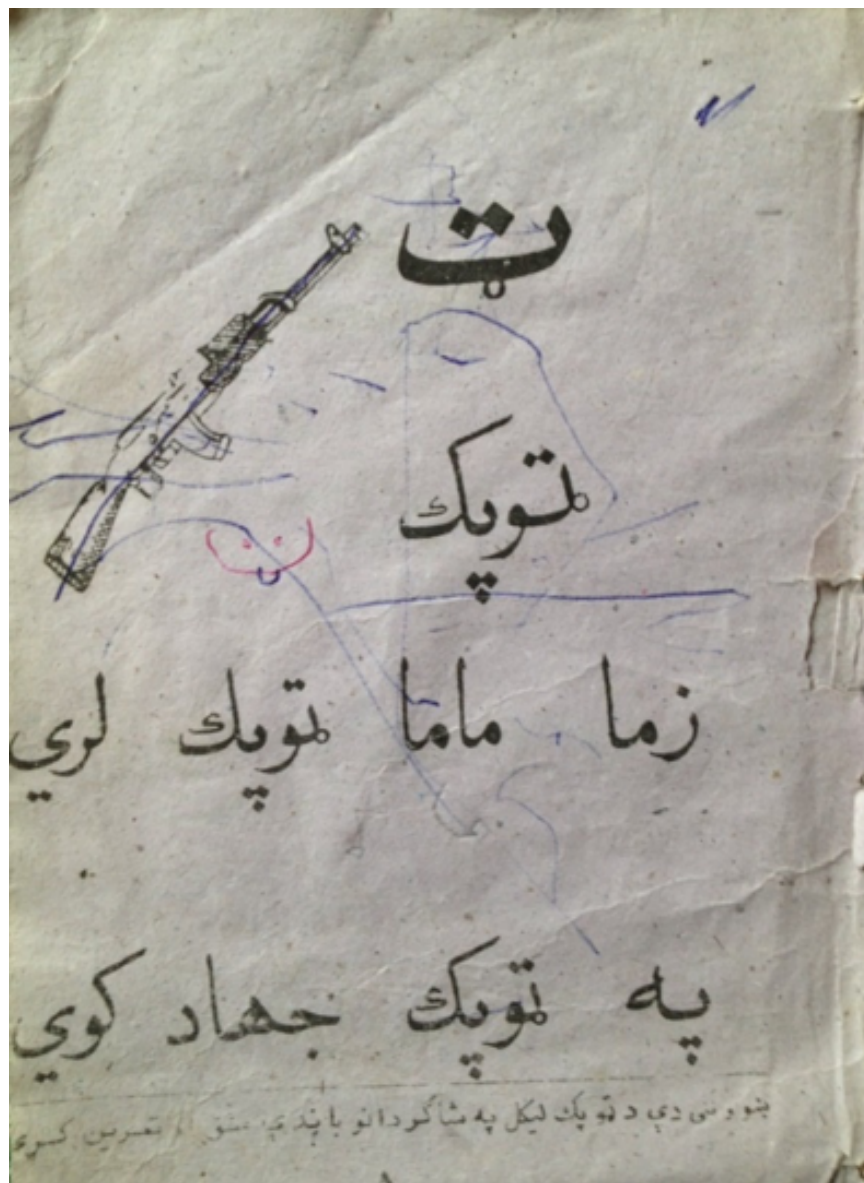 ټ
ټوپك
ټ
زما ماما ټوپك لري
په ټوپك جهاد كوي
ښوونكى دې د ټوپك ليكل په شاگردانو باندې مشق او تمرين كړي